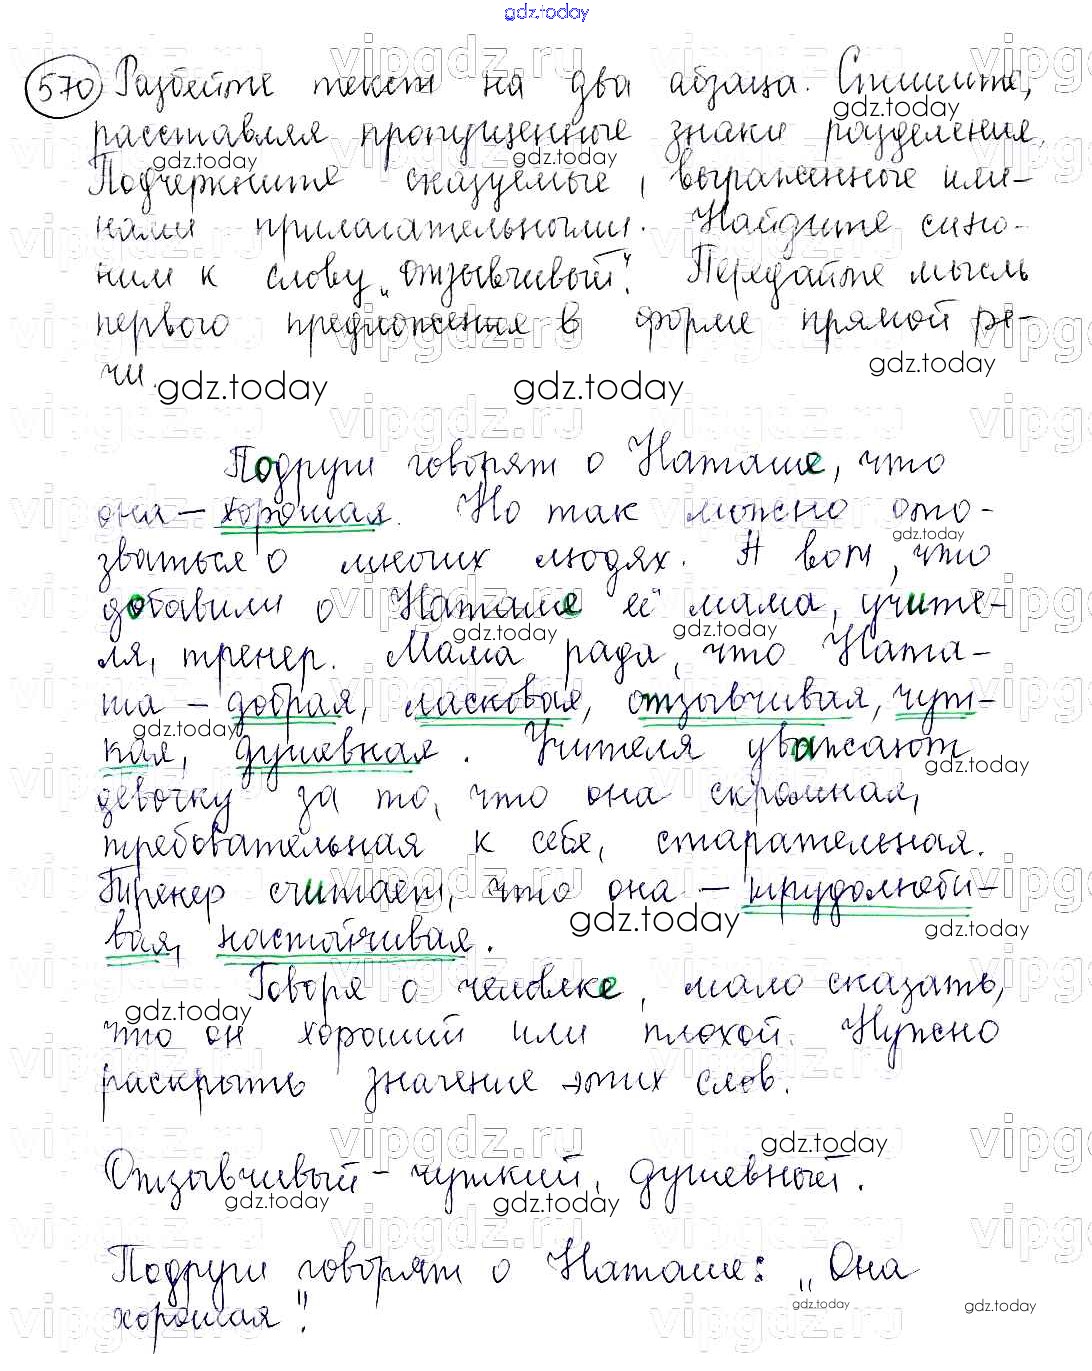 gdz.today
570 Разбейте текст на два абзаца. Спишите,
расставляя пропущенные знаки разделения.
Подчеркните сказуемые, выраженные име-
нами прилагательными. Найдите сино-
ним к слову „отзывчивый". Передайте мысль
первого предложения в форме прямой ре-
чи.
Подруги говорят о Наташе, что
она – хорошая. Но так можно ото-
зваться о многих людях. А вот, что
добавили о Наташе её мама, учите-
ля, тренер. Мама рада, что Ната-
ша – добрая, ласковая, отзывчивая, чут-
кая, душевная. Учителя уважают
девочку за то, что она скромная,
требовательная к себе, старательная.
Тренер считает, что она – трудолюби-
вая, настойчивая.
Говоря о человеке, мало сказать,
что он хороший или плохой. Нужно
раскрыть значение этих слов.
Отзывчивый – чуткий, душевный.
Подруги говорят о Наташе: „Она
хорошая"!